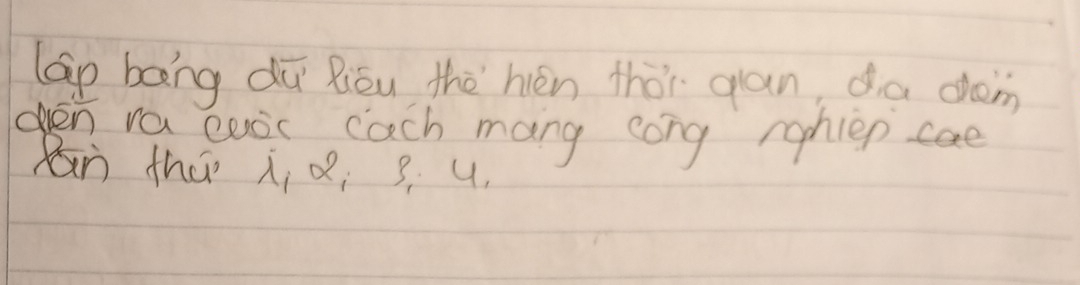 lập bảng dữ liệu thể hiện thời gian, địa điểm
diễn ra cuộc cách mạng công nghiệp các
lần thứ 1, 2, 3, 4.